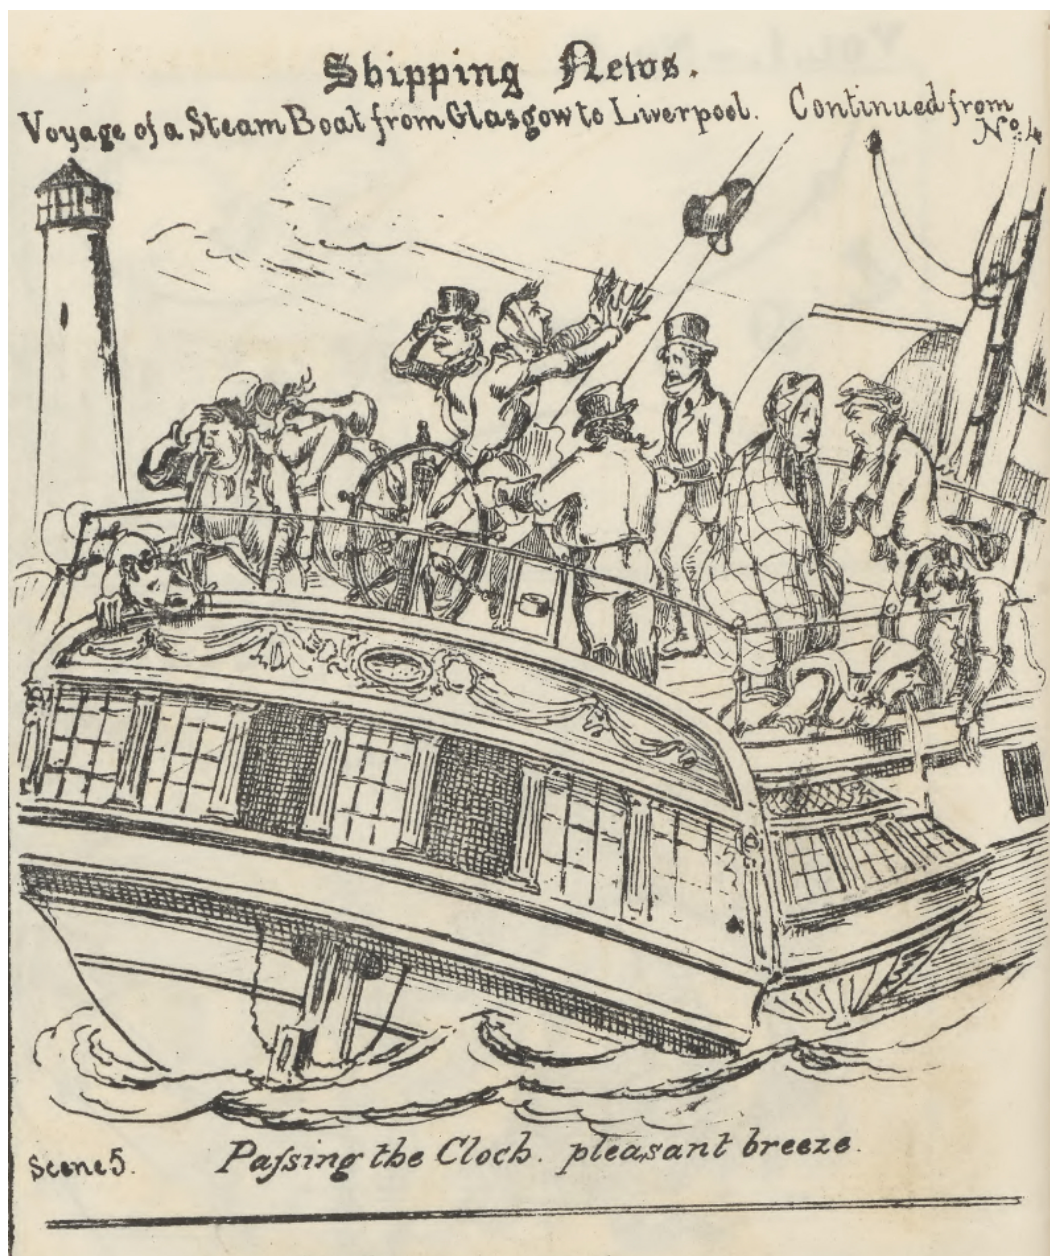 Shipping News.
Voyage of a Steam Boat from Glasgow to Liverpool. Continued from
No. 4
Scene 5. Paſsing the Cloch. pleasant breeze.